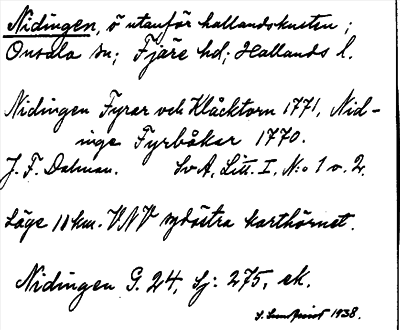 Nidingen, ö utanför hallandskusten;
Onsala sn; Fjäre hd; Hallands l.
Nidingen Fyrar och Klåcktorn 1771, Nid-
inge Fyrbåkar 1770.
J. F. Dalman. SvA, Litt. I, N:o 1 o. 2.
Läge 11 km. VNV sydöstra karthörnet.
Nidingen G. 24, Sj: 275, ek.
1938.